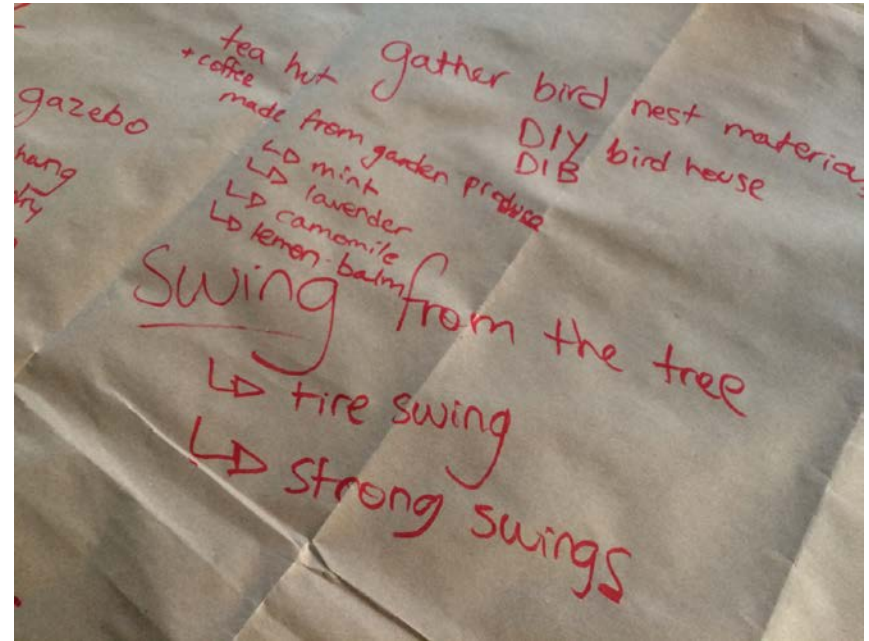 gazebo
hang
tea hut
+ coffee
made from garden produce
↳ mint
↳ lavender
↳ camomile
↳ lemon balm
gather bird nest
DIY bird house
DIB
Swing from the tree
↳ tire swing
↳ strong swings